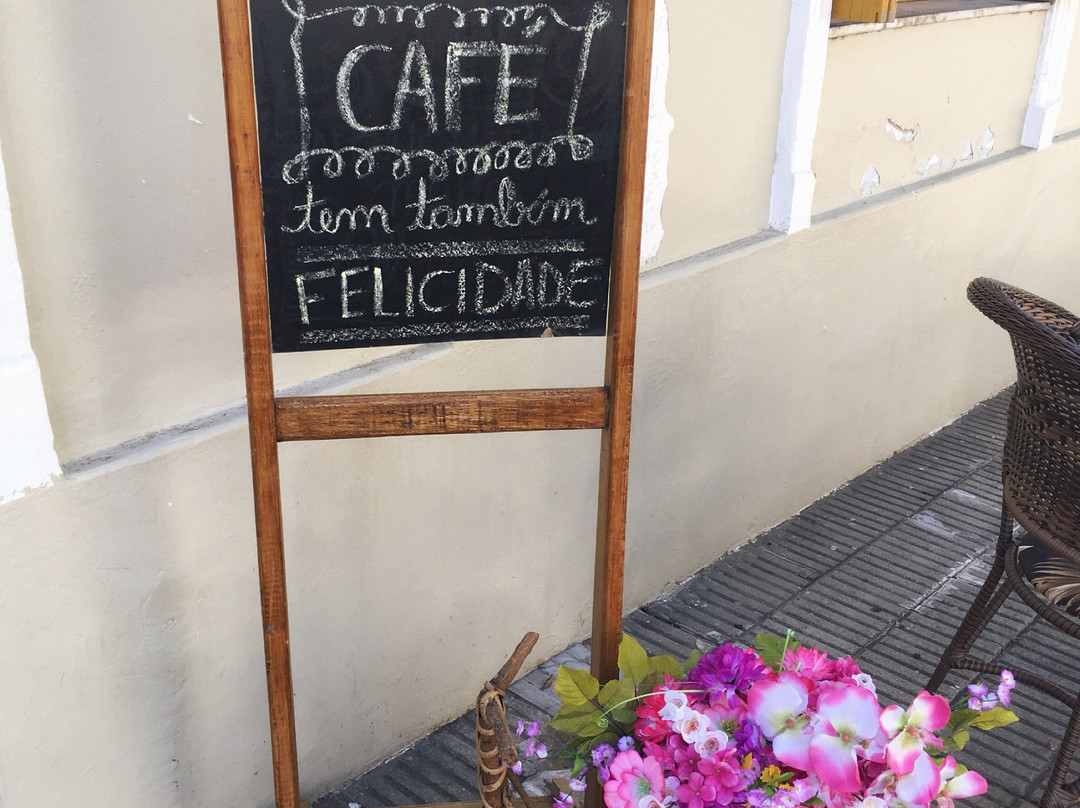 CAFÉ
tem também
FELICIDADE